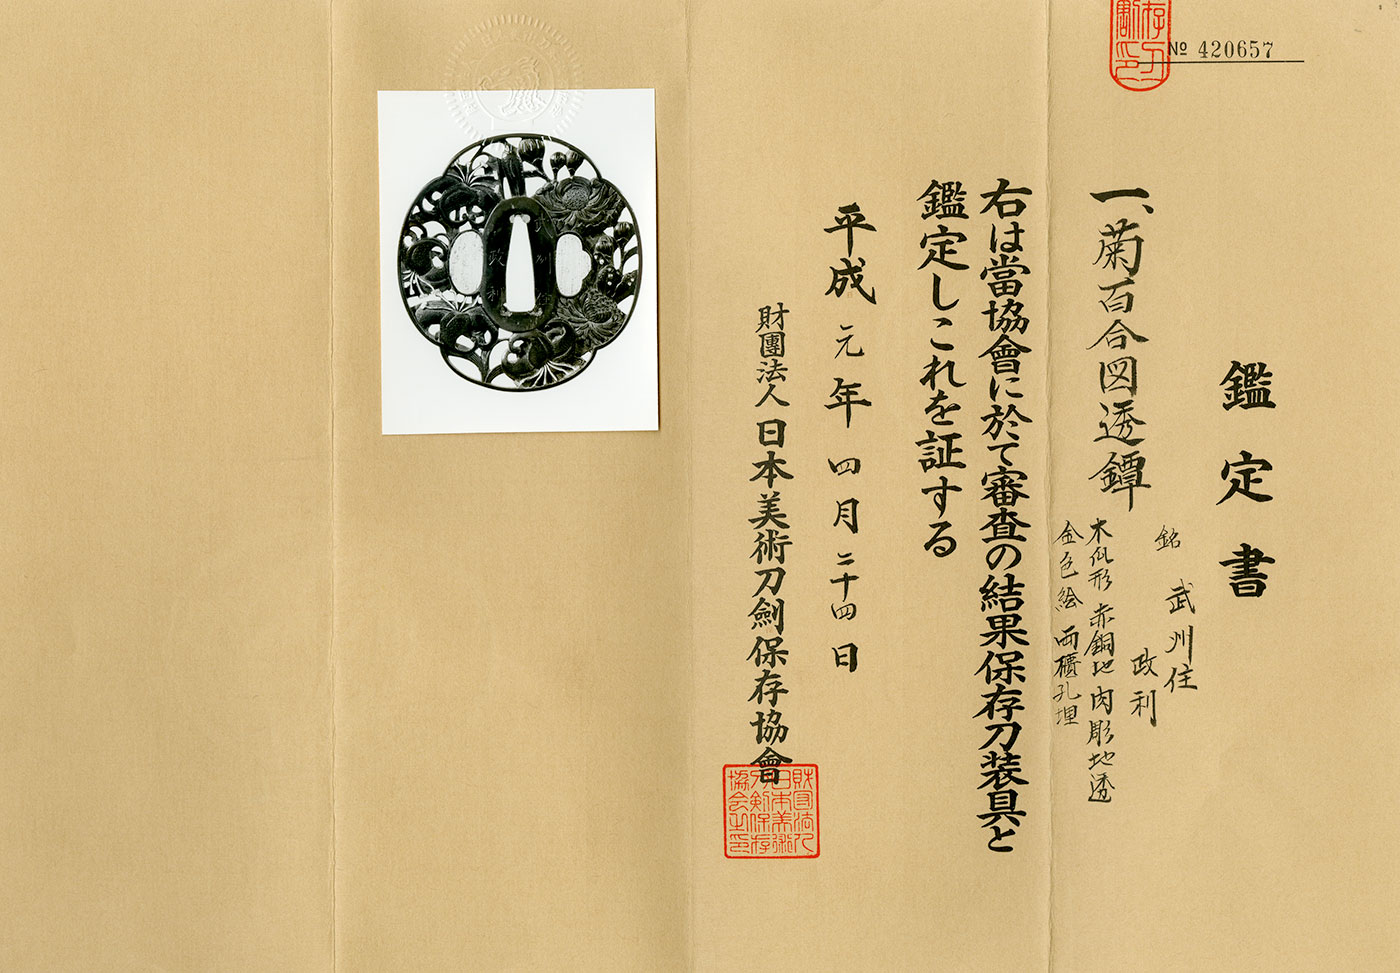 № 420657
鑑定書
一、菊百合図透鐔
銘 武州住
政利
木瓜形 赤銅地 肉彫地透
金色絵 両櫃孔埋
右は當協會に於て審査の結果保存刀装具と
鑑定しこれを証する
平成元年四月二十四日
財團法人日本美術刀劍保存協會
財団法人
日本美術
刀剣保存
協会之印